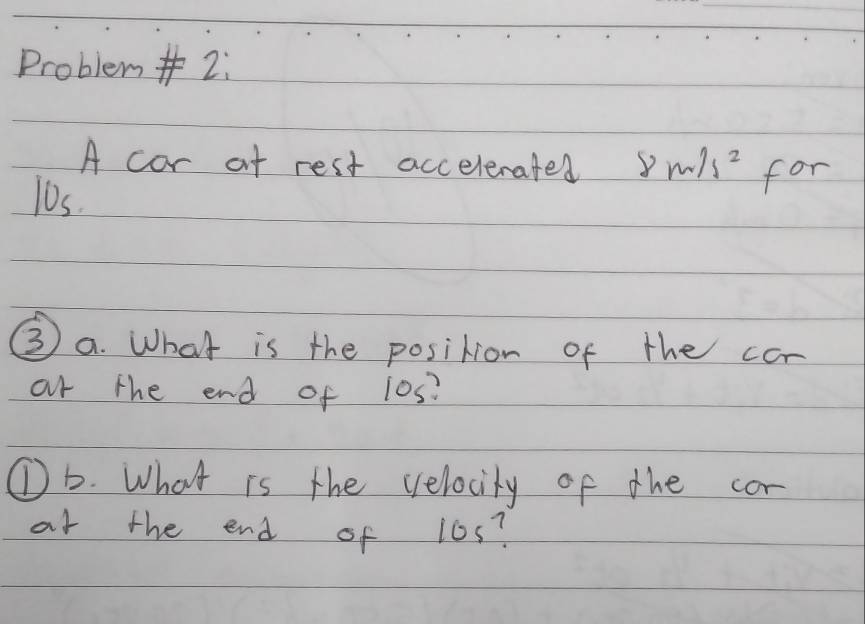 Problem # 2:
A car at rest accelerated 8 m/s² for
10s.
③ a. What is the position of the car
at the end of 10s?
① b. What is the velocity of the car
at the end of 10s?